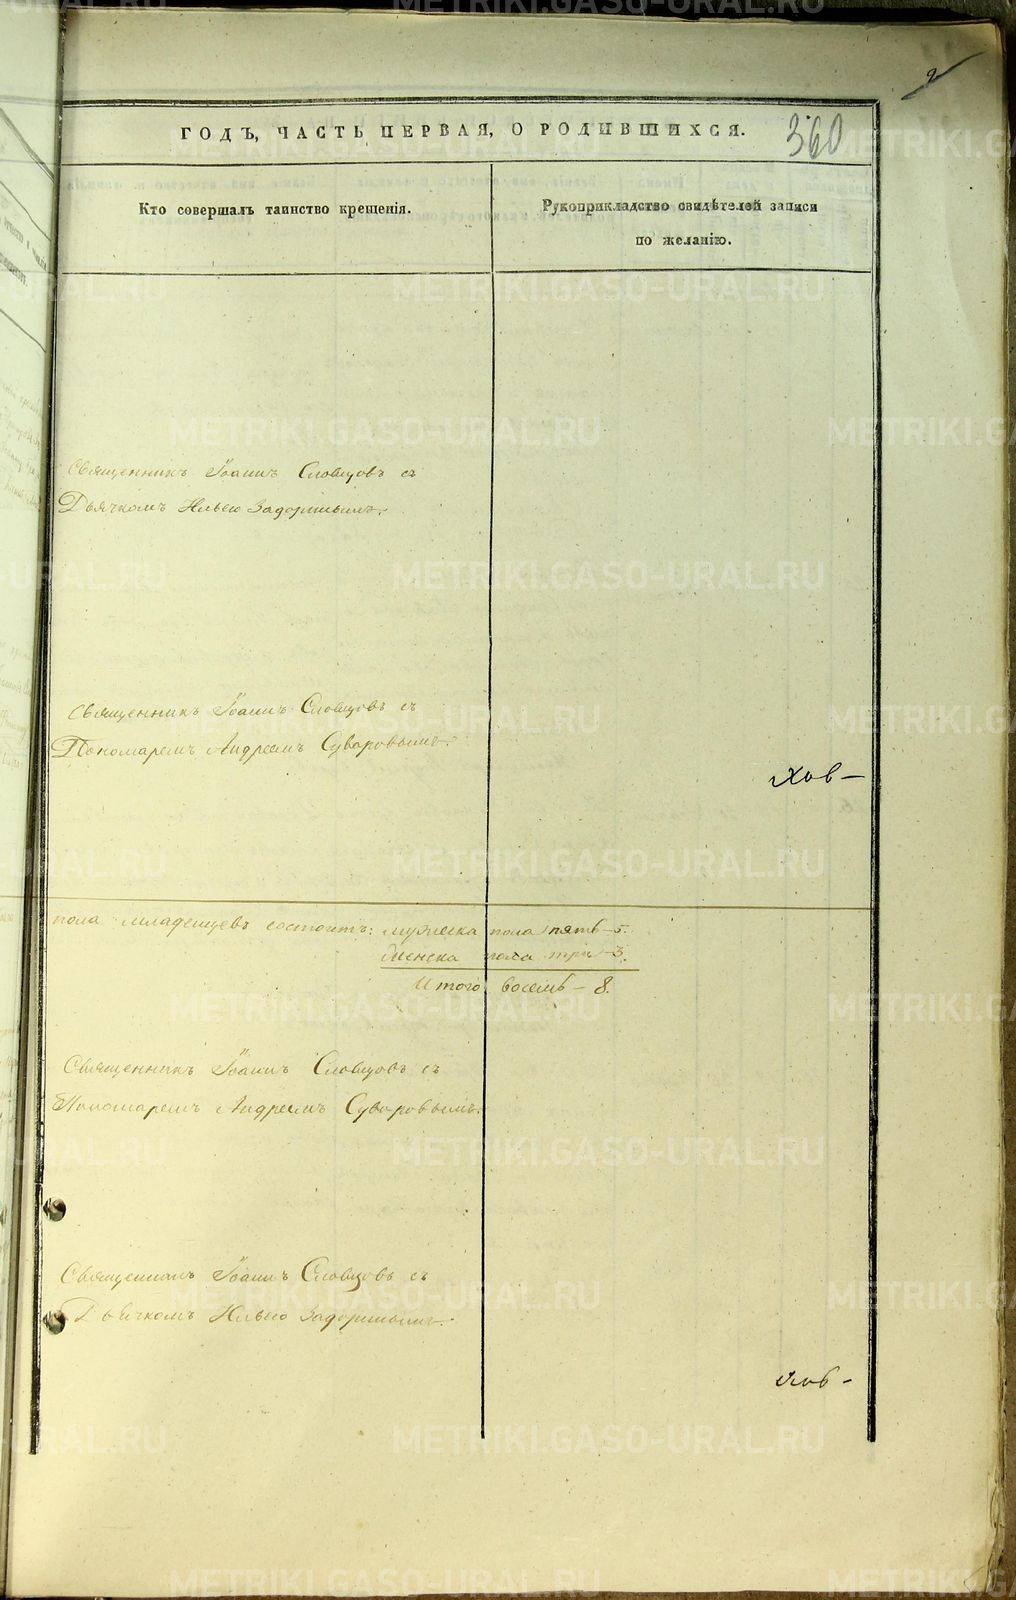 2
ГОДЪ, ЧАСТЬ ПЕРВАЯ, О РОДИВШИХСЯ.
360
Кто совершалъ таинство крещенія.
Рукоприкладство свидѣтелей записи
по желанію.
Священникъ Іоаннъ Словцовъ съ
Дьячкомъ Ильею Задоринымъ.
Священникъ Іоаннъ Словцовъ съ
Пономаремъ Андреемъ Суворовымъ.
пола младенцевъ состоитъ: мужеска пола пять – 5.
женска пола три – 3.
Итого восемь – 8.
Священникъ Іоаннъ Словцовъ съ
Пономаремъ Андреемъ Суворовымъ.
Священникъ Іоаннъ Словцовъ съ
Дьячкомъ Ильею Задоринымъ.
METRIKI.GASO-URAL.RU